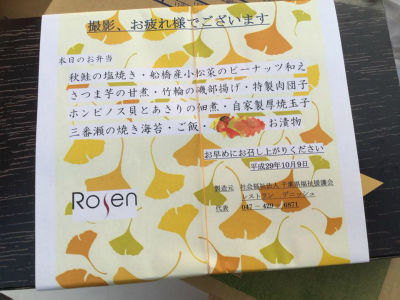 撮影、お疲れ様でございます
本日のお弁当
秋鮭の塩焼き・船橋産小松菜のピーナッツ和え
さつま芋の甘煮・竹輪の磯部揚げ・特製肉団子
ホンビノス貝とあさりの佃煮・自家製厚焼玉子
三番瀬の焼き海苔・ご飯・お漬物
お早めにお召し上がりください
平成29年10月9日
Rosen
製造元 社会福祉法人千葉県福祉援護会
レストラン デニッシュ
代表 047-429-6871